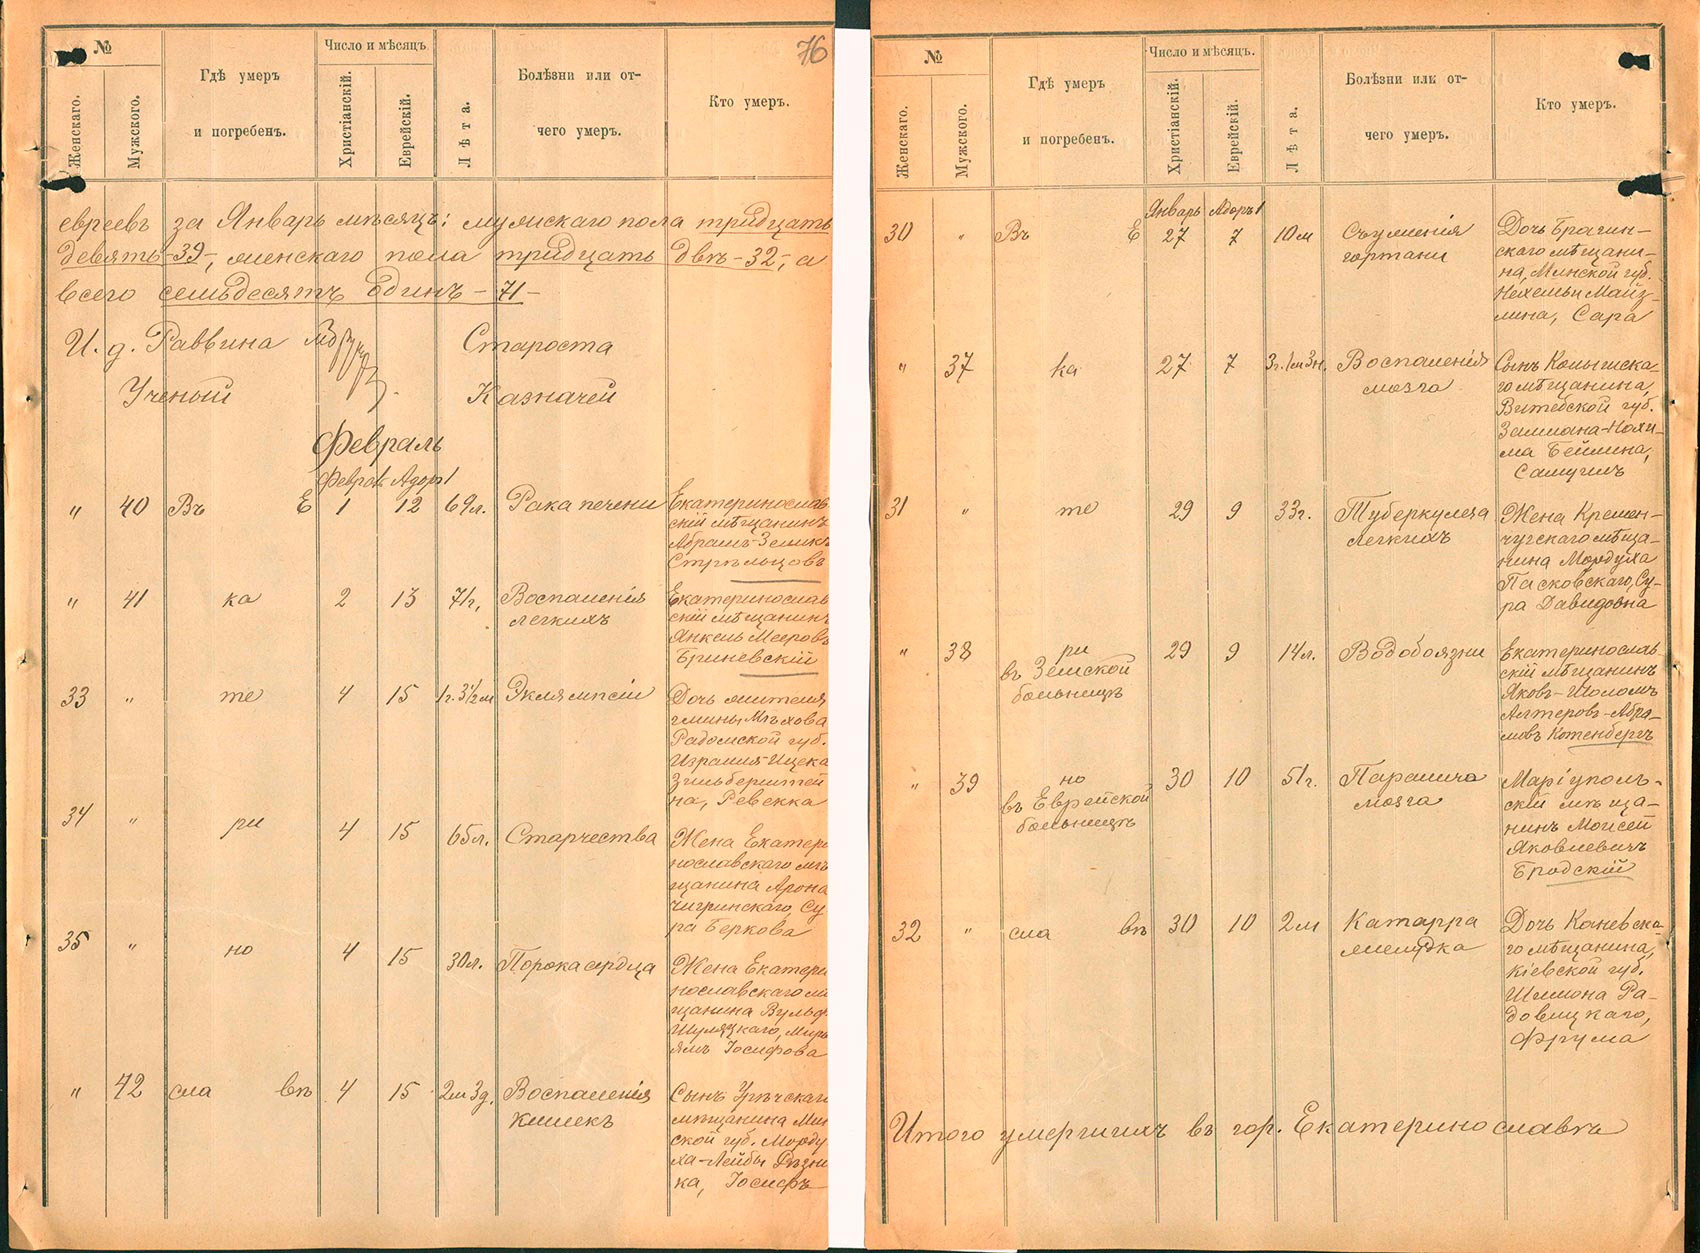 76
№
Женскаго.
Мужского.
Гдѣ умеръ
и погребенъ.
Число и мѣсяцъ
Христіанскій.
Еврейскій.
Лѣта.
Болѣзни или от-
чего умеръ.
Кто умеръ.
евреевъ за Январь мѣсяцъ: мужскаго пола тридцать
девять -39-, женскаго пола тридцать двѣ -32-, а
всего семьдесятъ одинъ -71-
И. д. Раввина Староста
Ученый Казначей
Февраль
Феврал Адоръ 1
" 40 Въ Е 1 12 69л. Рака печени Екатеринослав
скій мѣщанинъ
Абрамъ-Зелик
Стрѣльцовъ
" 41 ка 2 13 71г. Воспаленія Екатеринослав
легкихъ скій мѣщанинъ
Янкель Мееровъ
Бриневскій
33 " те 4 15 1г. 3½м Эклямпсіи Дочь жителя
гмины Мѣхова
Радомской губ.
Израиля-Ицека
Зильберштей
на, Ревекка
34 " ри 4 15 65л. Старчества Жена Екатери
нославскаго мѣ
щанина Арона
Чигринскаго, Су
ра Беркова
35 " но 4 15 30л. Порока сердца Жена Екатери
нославскаго мѣ
щанина Вульф
Шуляцкаго, Мирь
ямъ Іосифова
" 42 сла вѣ 4 15 2м 3д. Воспаленія Сынъ Урѣчскаго
кишекъ мѣщанина Мин
ской губ. Морду
ха-Лейбы Рѣзни
ка, Іосифъ
№
Женскаго.
Мужского.
Гдѣ умеръ
и погребенъ.
Число и мѣсяцъ.
Христіанскій.
Еврейскій.
Лѣта.
Болѣзни илк от-
чего умеръ.
Кто умеръ.
Январь Адоръ 1
30 " Въ Е 27 7 10м Съуженія Дочь Брагин-
гортани скаго мѣщани-
на, Минской губ.
Нехемьи Майз-
лина, Сара
" 37 ка 27 7 3г. 1м 3н. Воспаленія Сынъ Копыска-
мозга го мѣщанина,
Витебской губ.
Залмана-Нохи-
ма Бейлина,
Самуилъ
31 " те 29 9 33г. Туберкулеза Жена Кремен-
легкихъ чугскаго мѣща-
нина Мордуха
Пасковскаго, Су-
ра Давидовна
" 38 ри 29 9 14л. Водобоязни Екатеринослав
въ Земской скій мѣщанинъ
больницѣ Яковъ-Шоломъ
Алтеровъ-Абра-
мовъ Котенбергъ
" 39 но 30 10 51г. Паралича Маріуполь-
въ Еврейской мозга скій мѣща-
больницѣ нинъ Моисей
Яковлевичъ
Бродскій
32 " сла вѣ 30 10 2м Катарра Дочь Каневска-
желудка го мѣщанина,
Кіевской губ.
Шлмона Ра-
довицкаго,
Фрума
Итого умершихъ въ гор. Екатеринославѣ